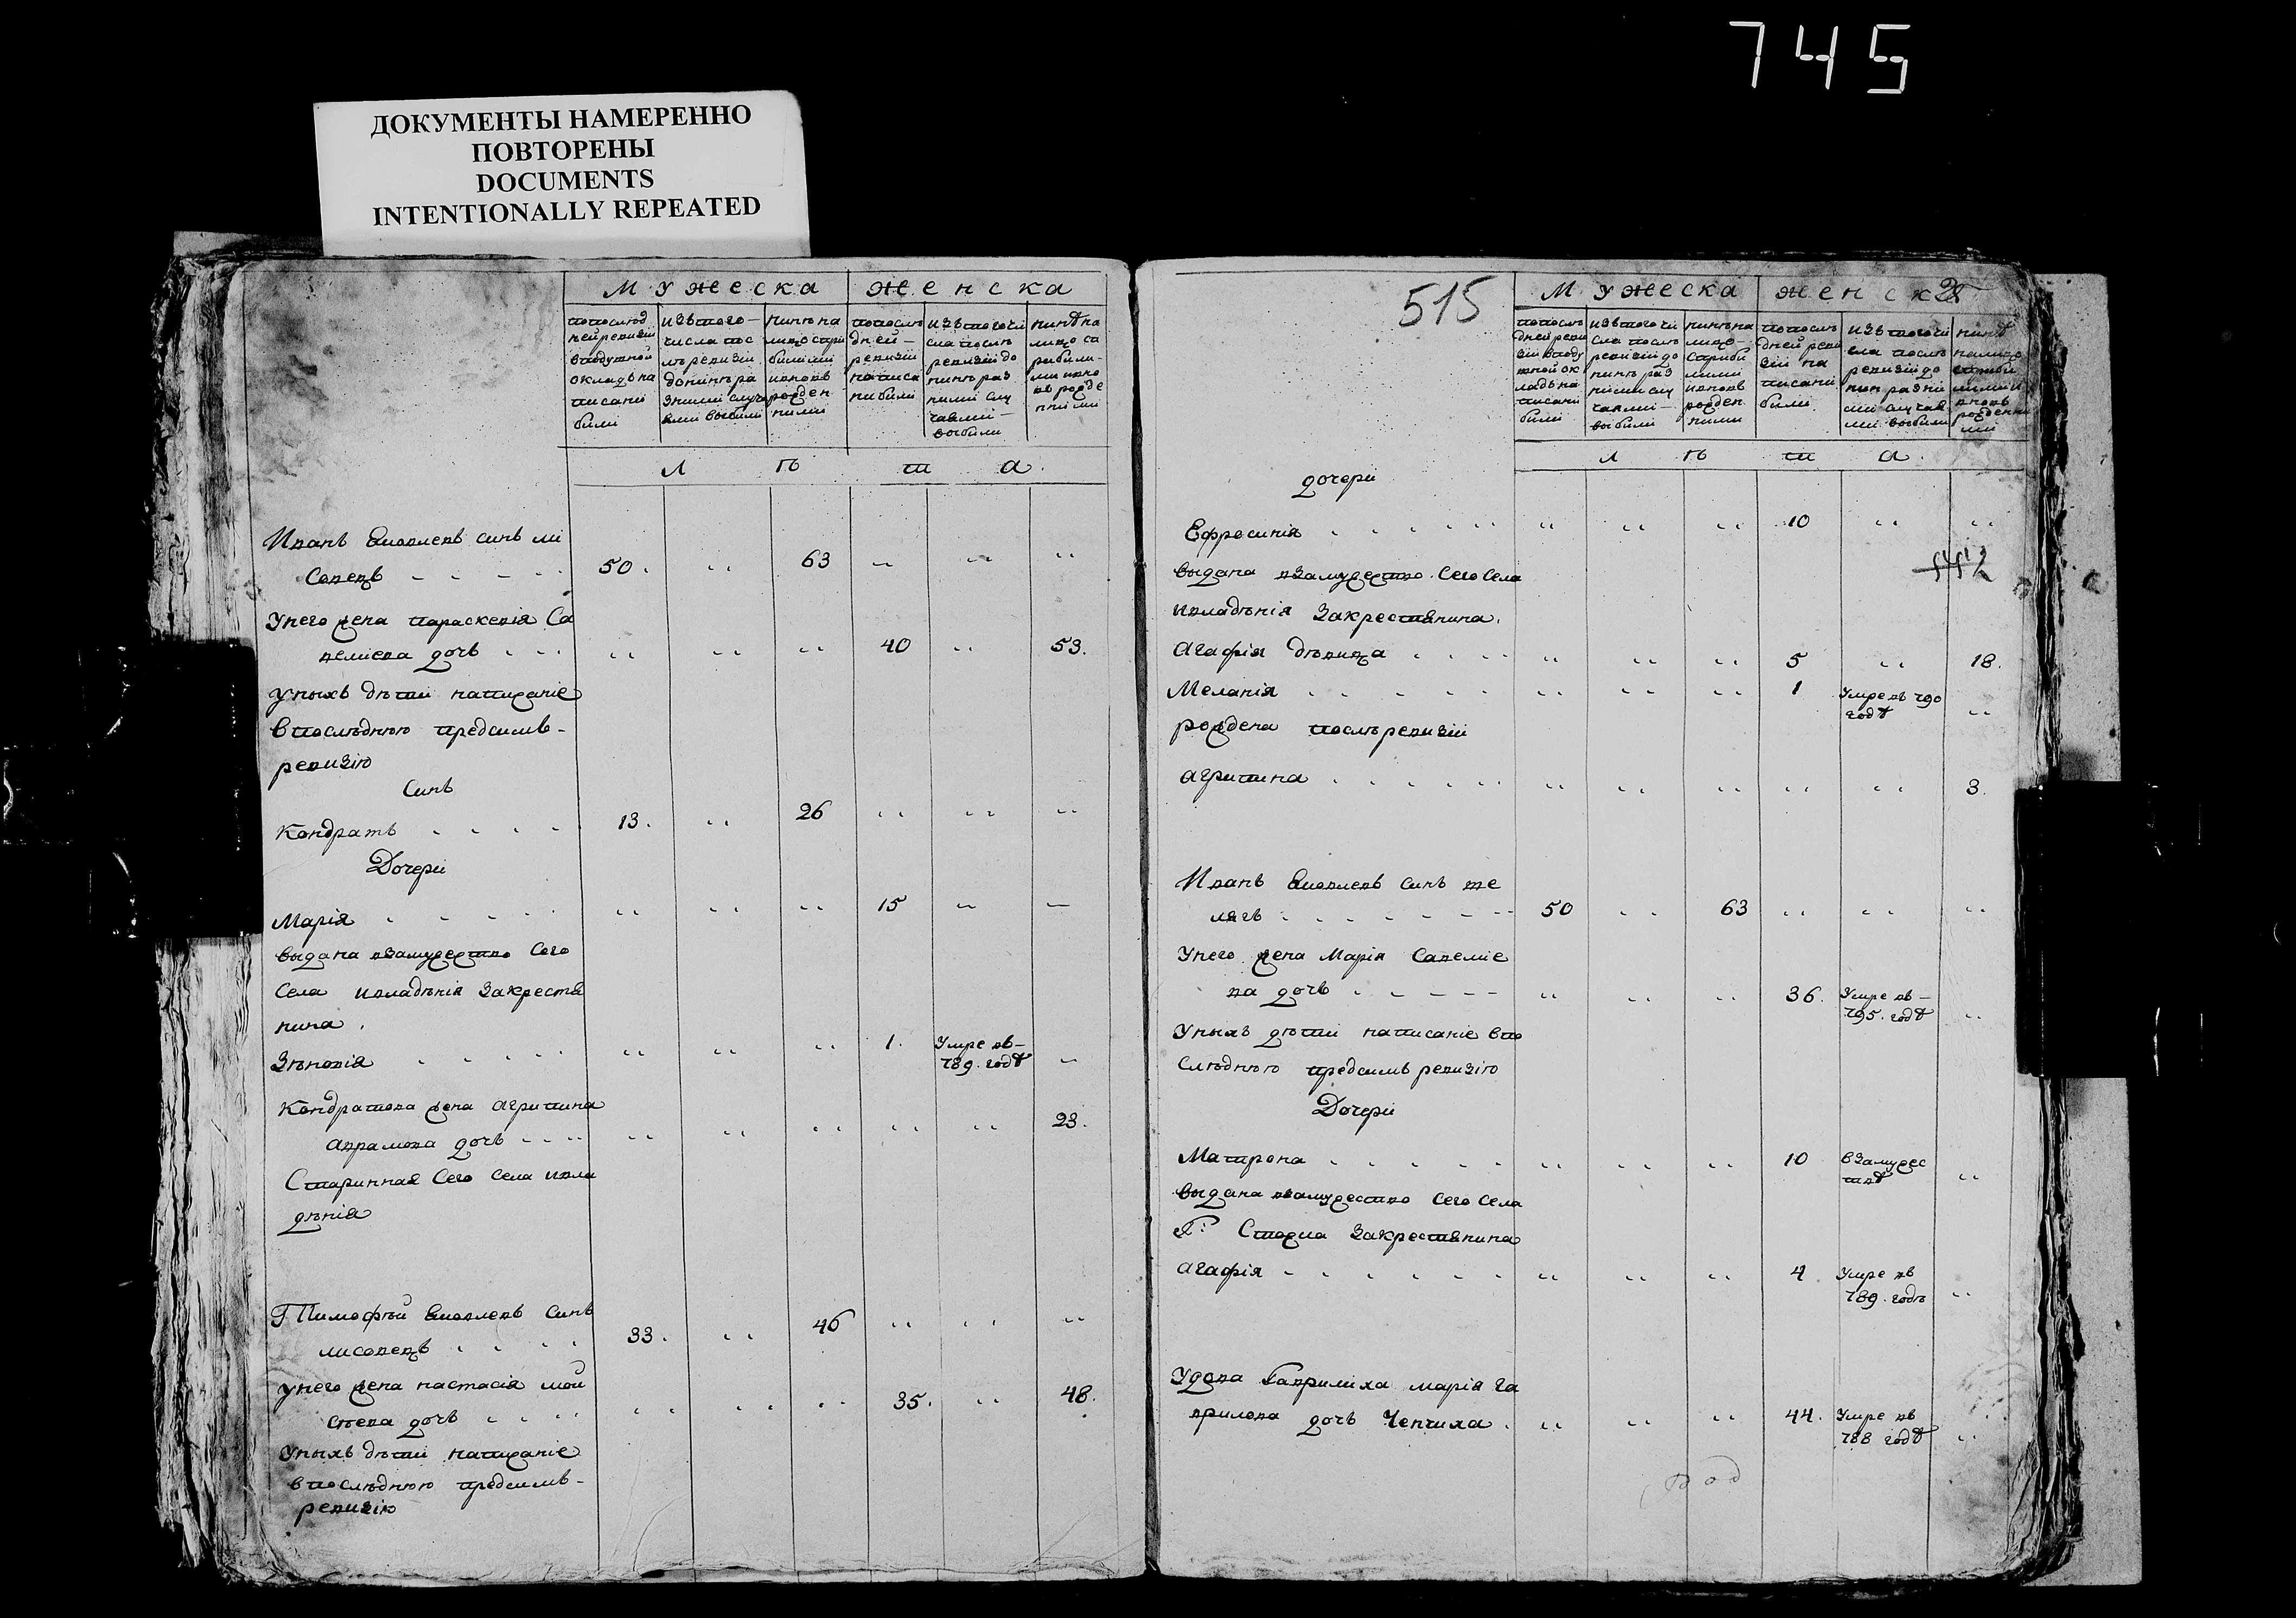 745
ДОКУМЕНТЫ НАМЕРЕННО
ПОВТОРЕНЫ
DOCUMENTS
INTENTIONALLY REPEATED
Мужеска женска
попослѣд нейревизіи вподушной окладъ на писани были
изътого числа пос лѣ ревизіи донынѣ ра зними случа ями выбыли
нынѣ на лицо спри былими ивновь рожден ними
попослѣ дней ревизіи написа ни были
изътогочи сла послѣ ревизіи до нынѣ раз ними слу чаями выбыли
нынѣ на лицо съ прибыли ми ивно вь рожде нними
л ѣ т а.
Иванъ Яковлевъ синъ ли
совецъ 50. 63
Унего жена параскевія Са
велиева дочь 40 53.
уныхъ дѣти написаніе
впослѣднюю предсимъ
ревизію
Синъ
Кондратъ 13. 26
Дочери
Марія 15
выдана взамужество Сего
Села ивладѣнія Закрестя
нина.
Зѣновія 1. Умре въ 789. годѣ
Кондратова жена агрипина
аврамова дочь 23.
Старинная Сего Села ивла
дѣнія
Тимофѣй Яковлевъ Синъ
лисовецъ 33. 46
унего жена настасія мои
сѣева дочь 35. 48.
Уныхъ дѣти написаніе
впослѣднюю предсимъ
ревизію
515
Мужеска женск 28
попослѣ дней реви зіи вподу шной ок ладъ на писани были
изътого чи сла послѣ ревизіи до нынѣ раз ними слу чаями выбыли
нынѣ на лицо сприбы лими ивновь рожден ними
попослѣ дней реви зіи на писани были
изътого чи сла послѣ ревизіи до нын разни ми случая ми выбыли
нынѣ налицо лими и вновь рожденни ми
л ѣ т а.
дочери
Ефросинія 10
выдана взамужество Сего Села
ивладѣнія Закрестянина.
агафія дѣвица 5 18.
Меланія 1 Умре въ 790 годѣ
рождена послѣ ревизіи
агрипина 3.
Иванъ Яковлевъ синъ же
лягъ 50 63
Унего жена Марія Савеліе
ва дочь 36. Умре въ 795. годѣ
Уныхъ дѣти написаніе впо
слѣднюю предсимъ ревизію
Дочери
Матрона 10 взамужес твѣ
выдана взамужество Сего Села
Закрестянина
агафія 4 Умре въ 789. годѣ
Удова Гаврилиха марія га
врилова дочь Чепчиха. 44. Умре въ 788 годѣ